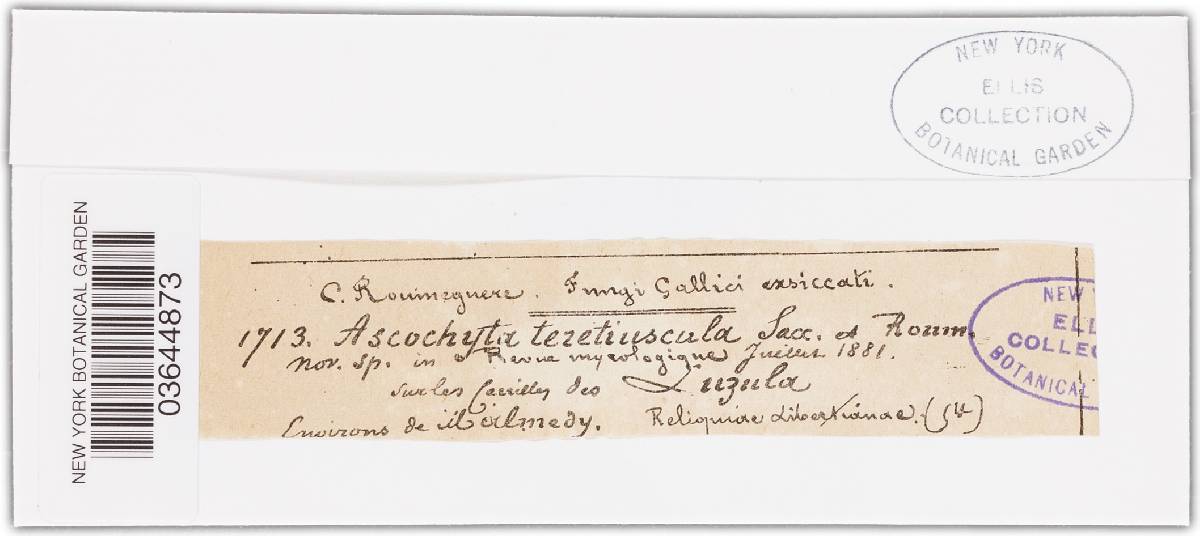 NEW YORK
ELLIS
COLLECTION
BOTANICAL GARDEN
NEW YORK BOTANICAL GARDEN
03644873
C. Roumeguere. Fungi Gallici exsiccati.
1713. Ascochyta teretiuscula Sacc. et Roum.
nov. sp. in Revue mycologique Juillet 1881.
sur les feuilles des Luzula
Environs de Malmedy. Reliquiae Libertianae.
NEW
ELL
COLLEC
BOTANICAL